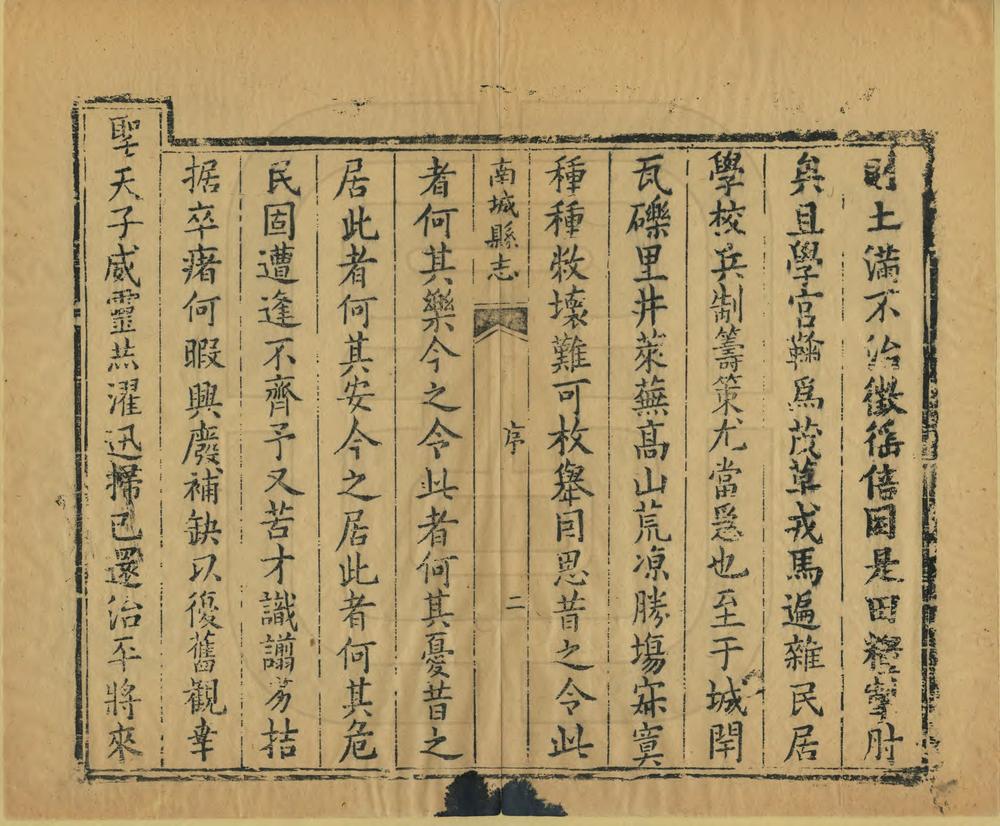 則土滿不治徵徭倍困是田糧掣肘
矣且學宮鞠爲茂草戎馬遍雜民居
學校兵制籌策尤當急也至于城閈
瓦礫里井萊蕪高山荒凉勝塲寂寞
種種敝壞難可枚舉因思昔之令此
南城縣志
序
二
者何其樂今之令此者何其憂昔之
居此者何其安今之居此者何其危
民固遭逢不齊予又苦才識譾劣拮
据卒瘏何暇興廢補缺以復舊觀幸
聖天子威靈燕濯迅掃已還治平將來